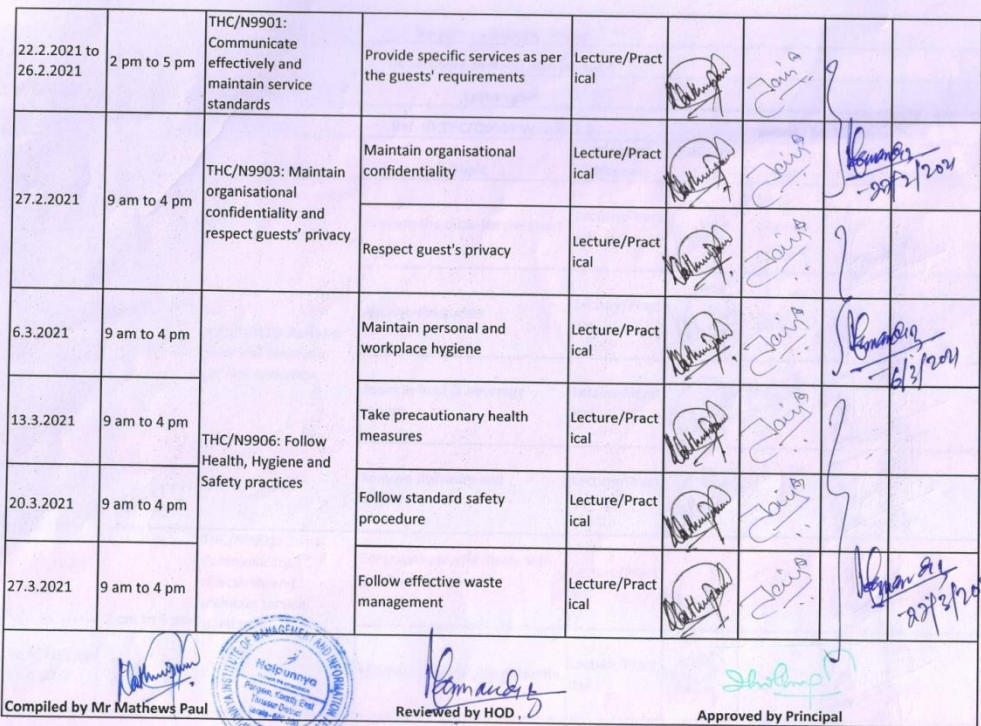 THC/N9901:
Communicate
effectively and
maintain service
standards
22.2.2021 to
26.2.2021
2 pm to 5 pm
Provide specific services as per
the guests' requirements
Lecture/Pract
ical
27.2.2021
9 am to 4 pm
THC/N9903: Maintain
organisational
confidentiality and
respect guests' privacy
Maintain organisational
confidentiality
Lecture/Pract
ical
27/2/2021
Respect guest's privacy
Lecture/Pract
ical
6.3.2021
9 am to 4 pm
THC/N9906: Follow
Health, Hygiene and
Safety practices
Maintain personal and
workplace hygiene
Lecture/Pract
ical
6/3/2021
13.3.2021
9 am to 4 pm
Take precautionary health
measures
Lecture/Pract
ical
20.3.2021
9 am to 4 pm
Follow standard safety
procedure
Lecture/Pract
ical
27.3.2021
9 am to 4 pm
Follow effective waste
management
Lecture/Pract
ical
27/3/20
INSTITUTE OF MANAGEMENT AND INFORMATION
Naipunnya
Pongam, Koratty East
Thrissur District
Compiled by Mr Mathews Paul
Reviewed by HOD
Approved by Principal